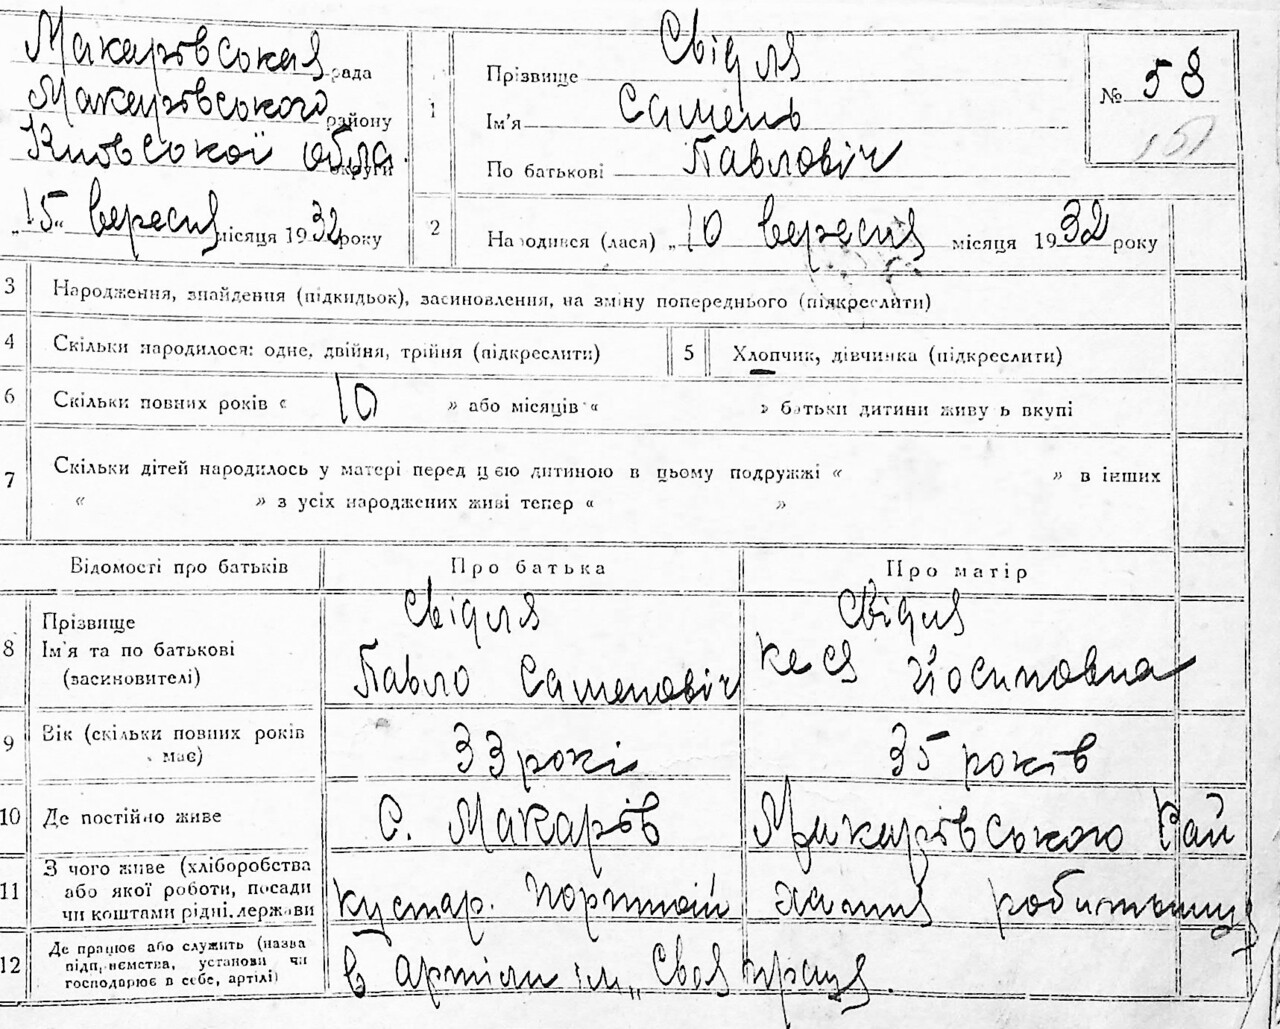 Макарівська рада
Макарівського району
Київської обла. округи
„15“ вересня місяця 1932 року
1
Прізвище Свідля
Ім'я Самень
По батькові Павловіч
№ 58
151
2
Народився (лася) „10 вересня місяця 1932 року
3 Народження, знайдення (підкидьок), засиновлення, на зміну попереднього (підкреслити)
4 Скільки народилося: одне, двійня, трійня (підкреслити)
5 Хлопчик, дівчинка (підкреслити)
6 Скільки повних років « 10 » або місяців « » батьки дитини живуть вкупі
7 Скільки дітей народилось у матері перед цією дитиною в цьому подружжі « » в інших
« » з усіх народжених живі тепер « »
Відомості про батьків Про батька Про матір
8 Прізвище
Ім'я та по батькові
(засиновителі)
Свідля
Павло Саменовіч
Свідля
Кеся Йосиповна
9 Вік (скільки повних років
має)
33 рокі
35 років
10 Де постійно живе С. Макарів Макарівського Рай
11 З чого живе (хліборобства
або якої роботи, посади
чи коштами рідні, держави
кустар. портной хатня робитниця
12 Де працює або служить (назва
підприємства, установи чи
господарює в себе, артілі)
в артіли ім „Своя праця.